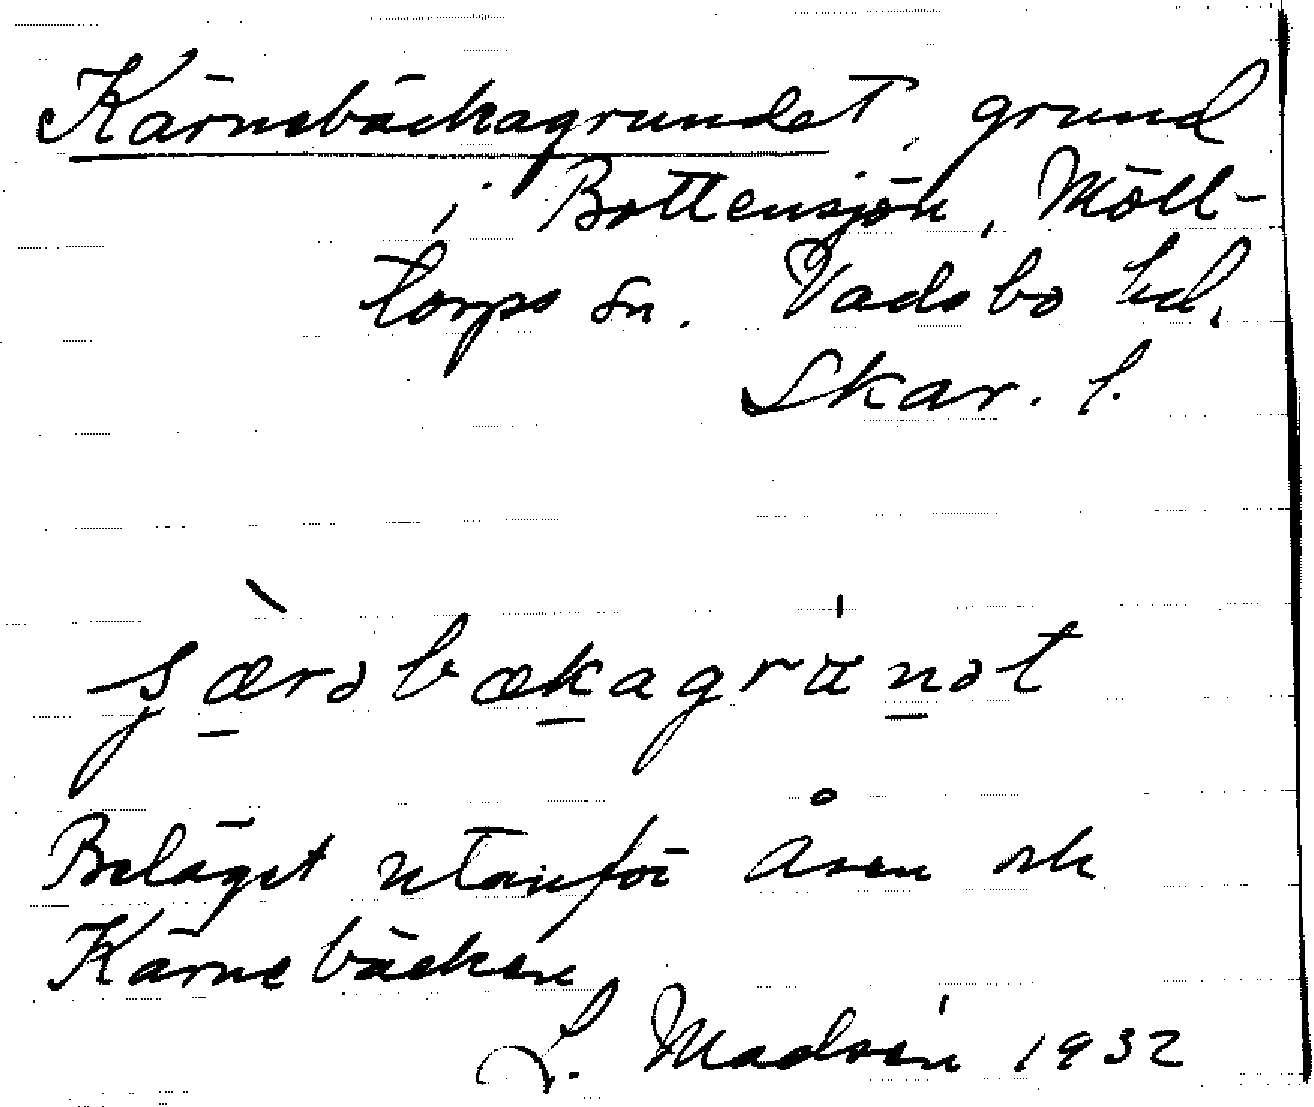 Kärnebäckagrundet, grund
i Bottensjön, Möll-
torps sn. Vadsbo hd.
Skar. l.
Beläget utanför Åsen och
Kärnebäcken
L. Madsén 1932